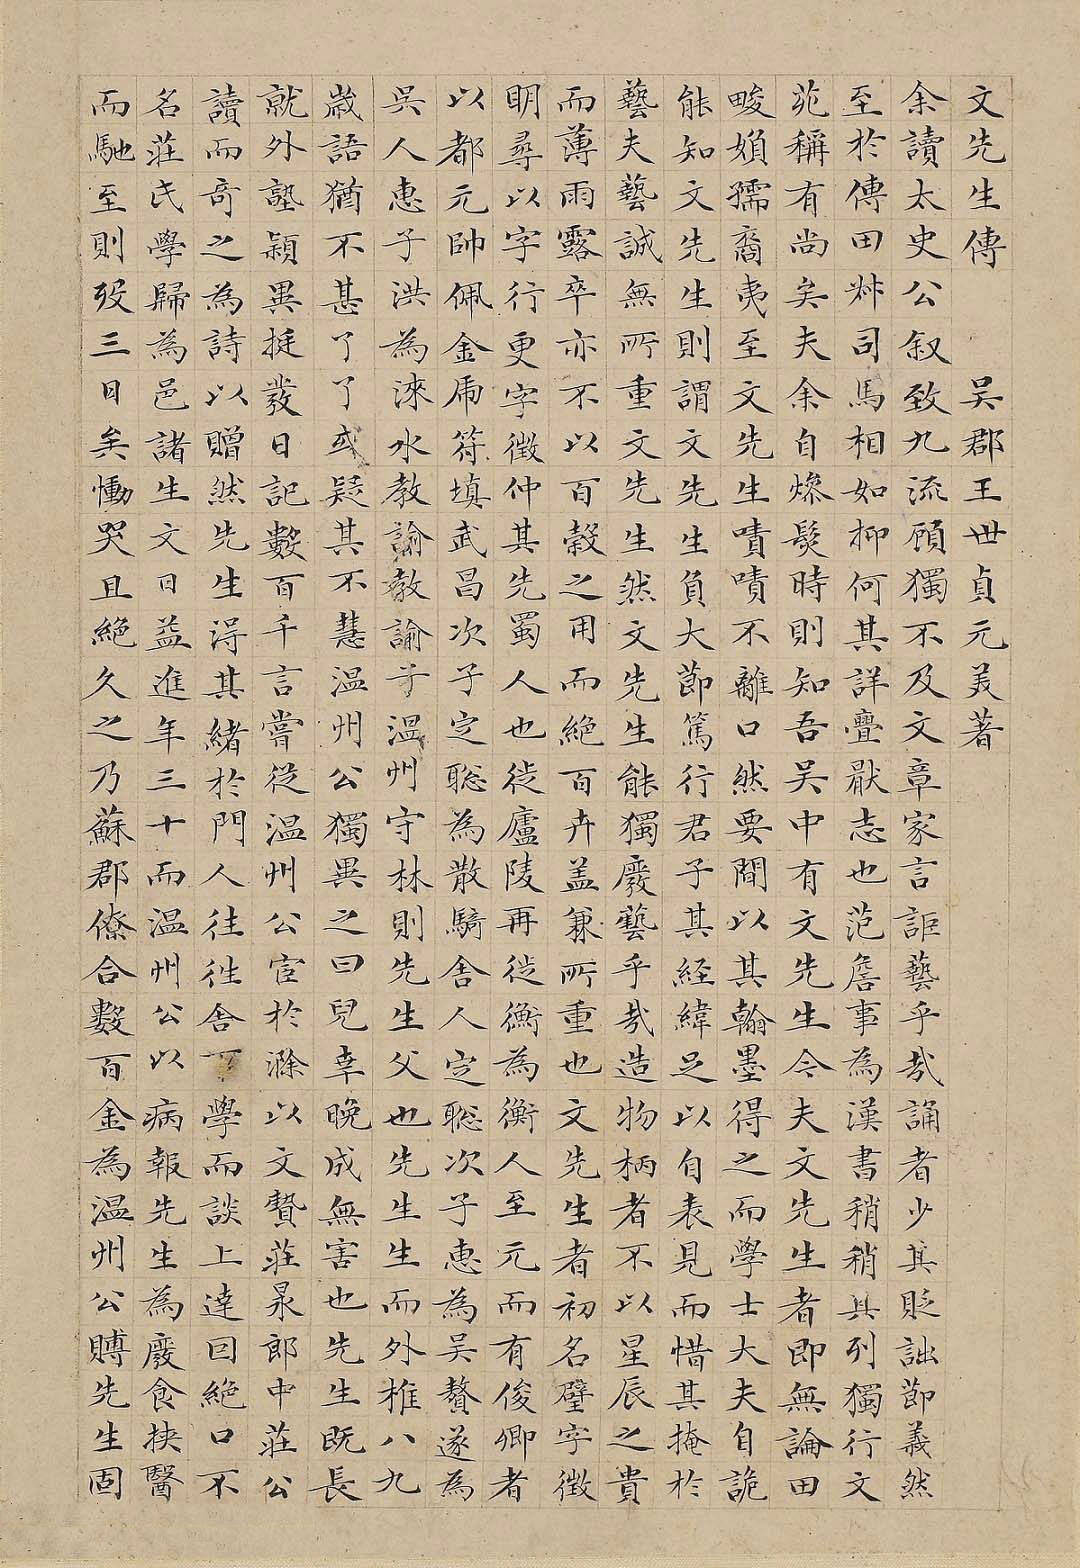 文先生傳 吳郡王世貞元美著
余讀太史公叙致九流顧獨不及文章家言詎藝乎㦲誦者少其貶詘節義然
至於傳田叔司馬相如抑何其詳疊厭志也范詹事為漢書稍稍具列獨行文
苑稱有尚矣夫余自燥髮時則知吾吳中有文先生今夫文先生者即無論田
畯嬪孺裔夷至文先生嘖嘖不離口然要間以其翰墨得之而學士大夫自詭
能知文先生則謂文先生負大節篤行君子其経緯足以自表見而惜其掩於
藝夫藝誠無所重文先生然文先生能獨廢藝乎㦲造物柄者不以星辰之貴
而薄雨露卒亦不以百穀之用而絶百卉盖兼所重也文先生者初名璧字徴
明尋以字行更字徴仲其先蜀人也徙廬陵再徙衡為衡人至元而有俊卿者
以都元帥佩金虎符填武昌次子定聡為散騎舍人定聡次子惠為吳贅遂為
吳人惠子洪為淶水教諭教諭子温州守林則先生父也先生生而外椎八九
歲語猶不甚了了或疑其不慧温州公獨異之曰兒幸晚成無害也先生既長
就外塾穎異挺發日記數百千言嘗從温州公宦於滁以文贄莊㫤郎中莊公
讀而竒之為詩以贈然先生淂其緒於門人往往舍下學而談上達回絶口不
名莊氏學歸為邑諸生文日益進年三十而温州公以病報先生為廢食挾醫
而馳至則歿三日矣慟哭且絶久之乃蘇郡僚合數百金為温州公賻先生固